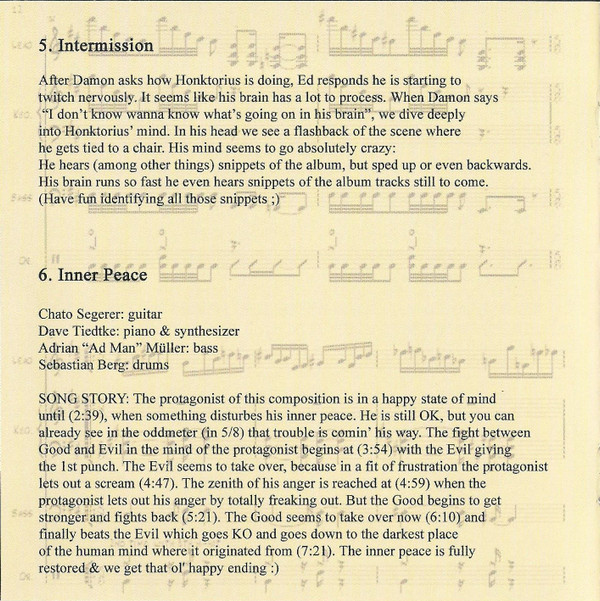 5. Intermission
After Damon asks how Honktorius is doing, Ed responds he is starting to
twitch nervously. It seems like his brain has a lot to process. When Damon says
“I don't know wanna know what's going on in his brain”, we dive deeply
into Honktorius' mind. In his head we see a flashback of the scene where
he gets tied to a chair. His mind seems to go absolutely crazy:
He hears (among other things) snippets of the album, but sped up or even backwards.
His brain runs so fast he even hears snippets of the album tracks still to come.
(Have fun identifying all those snippets ;)
6. Inner Peace
Chato Segerer: guitar
Dave Tiedtke: piano & synthesizer
Adrian “Ad Man” Müller: bass
Sebastian Berg: drums
SONG STORY: The protagonist of this composition is in a happy state of mind
until (2:39), when something disturbes his inner peace. He is still OK, but you can
already see in the oddmeter (in 5/8) that trouble is comin' his way. The fight between
Good and Evil in the mind of the protagonist begins at (3:54) with the Evil giving
the 1st punch. The Evil seems to take over, because in a fit of frustration the protagonist
lets out a scream (4:47). The zenith of his anger is reached at (4:59) when the
protagonist lets out his anger by totally freaking out. But the Good begins to get
stronger and fights back (5:21). The Good seems to take over now (6:10) and
finally beats the Evil which goes KO and goes down to the darkest place
of the human mind where it originated from (7:21). The inner peace is fully
restored & we get that ol' happy ending :)